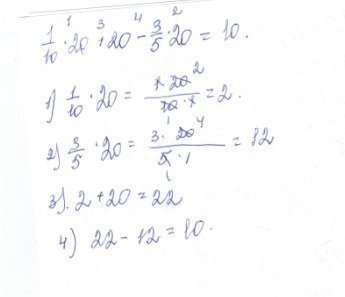 1/10 · 20 + 20 - 3/5 · 20 = 10.
1) 1/10 · 20 = 1·20/10·1 = 2.
2) 3/5 · 20 = 3·20/5·1 = 12
3). 2 + 20 = 22
4) 22 - 12 = 10.